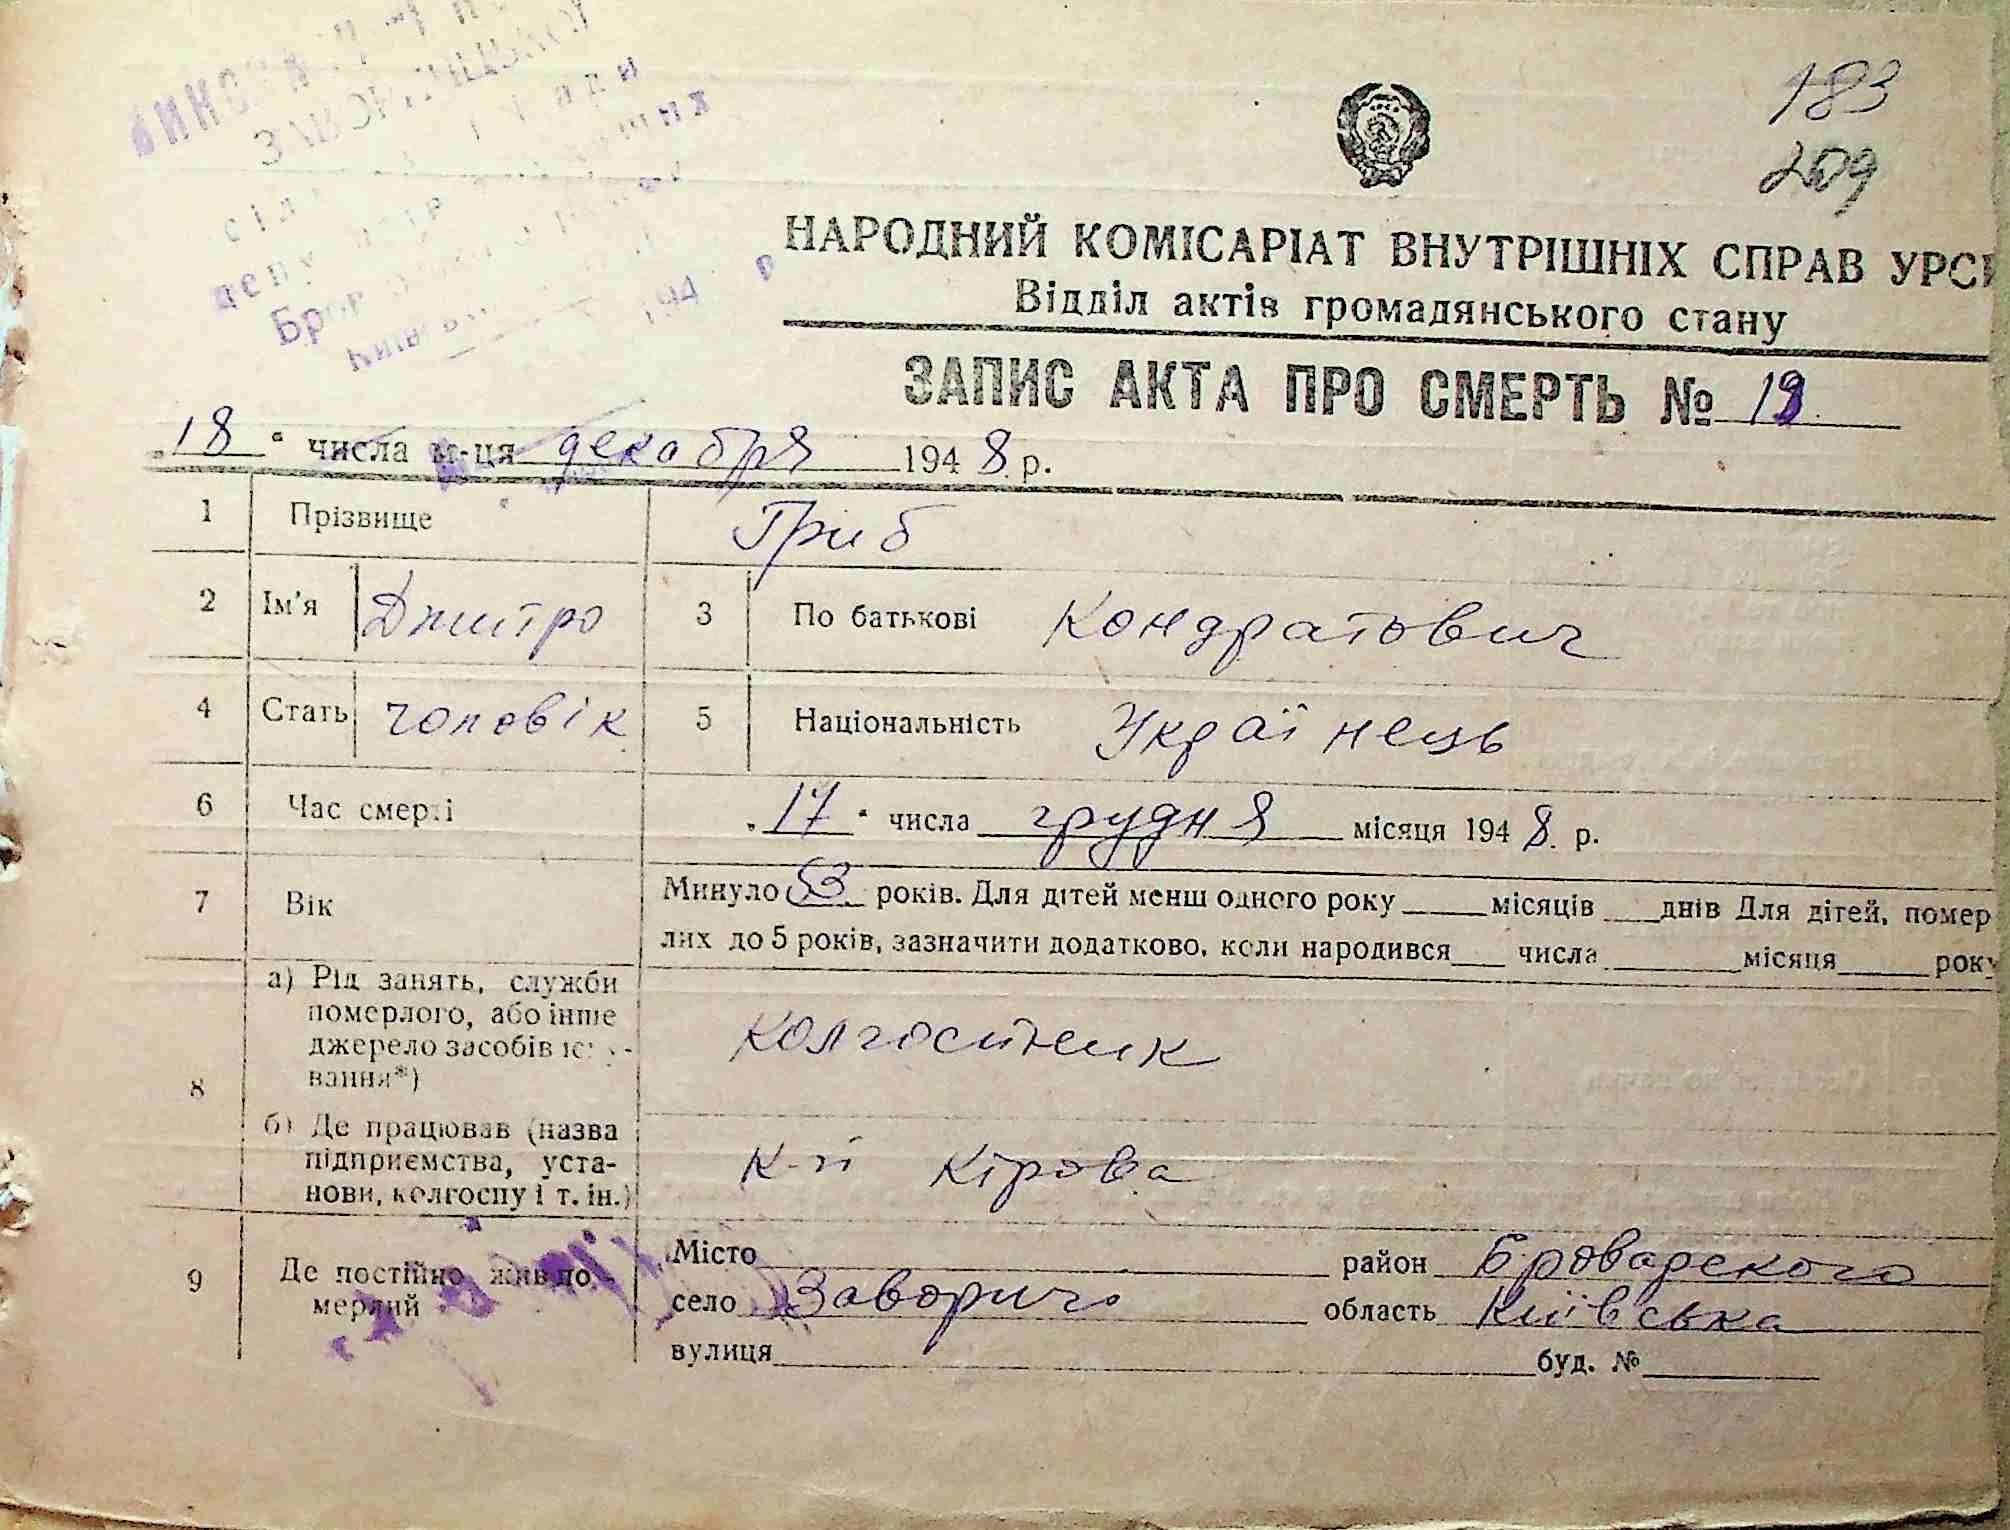 183
209
НАРОДНИЙ КОМІСАРІАТ ВНУТРІШНІХ СПРАВ УРСР
Відділ актів громадянського стану
ЗАПИС АКТА ПРО СМЕРТЬ № 19
„18“ числа м-ця декабря 1948 р.
1 Прізвище Гриб
2 Ім'я Дмитро 3 По батькові Кондратович
4 Стать чоловік 5 Національність Українець
6 Час смерті „17“ числа грудня місяця 1948 р.
7 Вік Минуло 53 років. Для дітей менш одного року ____ місяців ____ днів Для дітей, помер
лих до 5 років, зазначити додатково, коли народився ____ числа ____ місяця ____ року
8 а) Рід занять, служби
померлого, або інше
джерело засобів
вання*)
колгоспник
б) Де працював (назва
підприємства, уста-
нови, колгоспу і т. ін.)
к-п Кірова
9 Де постійно жив по-
мерлий
Місто ____ район Броварского
село Заворичі область Київська
вулиця ____ буд. № ____